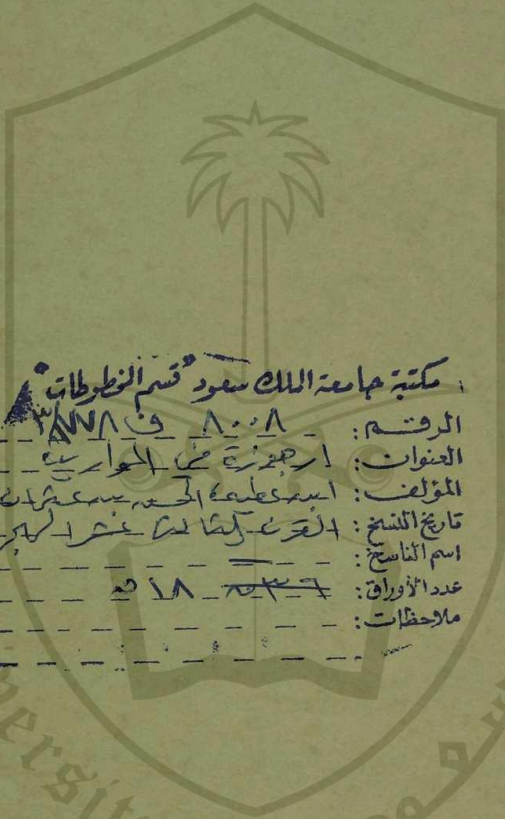 مكتبة جامعة الملك سعود "قسم المخطوطات"
الرقم: ٨٠٠٨ ف ٣/٨٧٧٨
العنوان: ارجوزة في المواريث
المؤلف: ابن عطية الحسن بن
تاريخ النسخ: القرن الثالث عشر الهجر
اسم الناسخ:
عدد الأوراق: ١٨ ص
ملاحظات:
versit